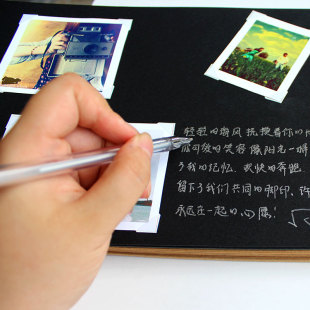 轻轻的海风 抚摸着你的
的笑容 像阳光一
了我的记忆. 欢快的奔跑.
留下了我们共同的脚印. 许
永远在一起的心愿!